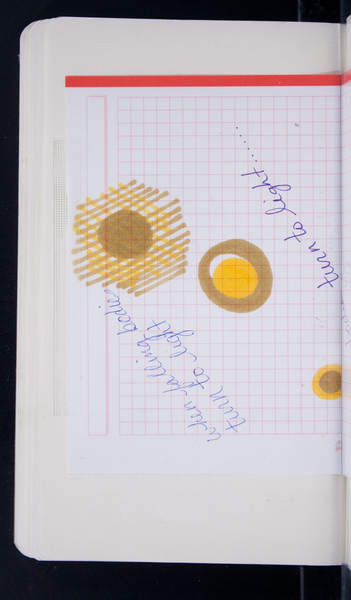 turn to light......
when falling bodies
turn to light